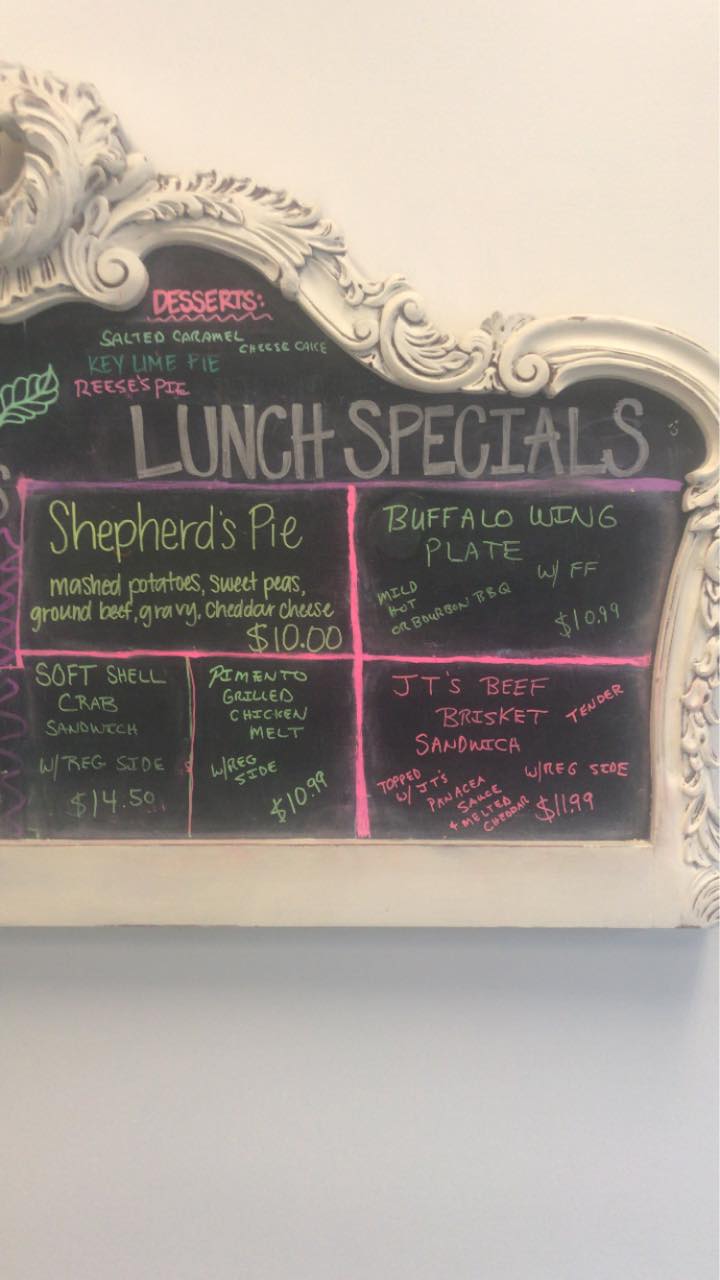 DESSERTS:
SALTED CARAMEL CHEESE CAKE
KEY LIME PIE
REESE'S PIE
LUNCH SPECIALS
Shepherd's Pie
mashed potatoes, sweet peas,
ground beef, gravy, cheddar cheese
$10.00
BUFFALO WING
PLATE
W/ FF
MILD
HOT
OR BOURBON BBQ
$10.99
SOFT SHELL
CRAB
SANDWICH
W/REG SIDE
$14.50
PIMENTO
GRILLED
CHICKEN
MELT
W/REG
SIDE
$10.99
JT'S BEEF
BRISKET TENDER
SANDWICH
W/REG SIDE
TOPPED
W/ JT'S
PANACEA
SAUCE
+ MELTED
CHEDDAR
$11.99